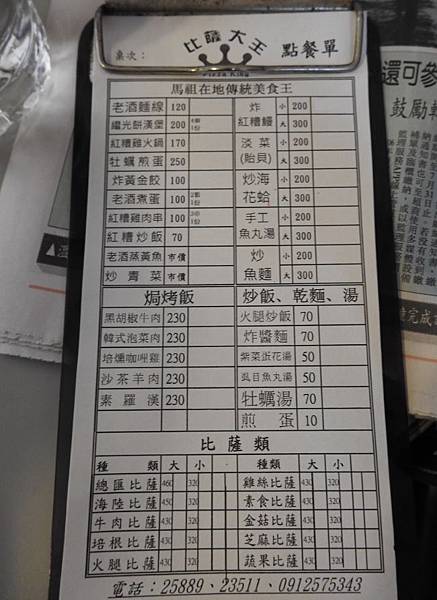 桌次：
比薩大王
Pizza King
點餐單
馬祖在地傳統美食王
老酒麵線 120
繼光餅漢堡 200
紅糟雞火鍋 170
牡蠣煎蛋 250
炸黃金餃 100
老酒煮蛋 100
紅糟雞肉串 100
紅糟炒飯 70
老酒蒸黃魚 市價
炒青菜 市價
炸紅糟鰻 小 200 大 300
淡菜(貽貝) 小 200 大 300
炒海花蛤 小 200 大 300
手工魚丸湯 小 200 大 300
炒魚麵 小 200 大 300
焗烤飯
黑胡椒牛肉 230
韓式泡菜肉 230
培燻咖哩雞 230
沙茶羊肉 230
素羅漢 230
炒飯、乾麵、湯
火腿炒飯 70
炸醬麵 70
紫菜蛋花湯 50
虱目魚丸湯 50
牡蠣湯 70
煎蛋 10
比薩類
種類 大 小 種類 大 小
總匯比薩 460 320 雞絲比薩 430 320
海陸比薩 450 320 素食比薩 430 320
牛肉比薩 430 320 金菇比薩 430 320
培根比薩 430 320 芝麻比薩 430 320
火腿比薩 430 320 蔬果比薩 430 320
電話：25889、23511、0912575343
還可參
鼓勵